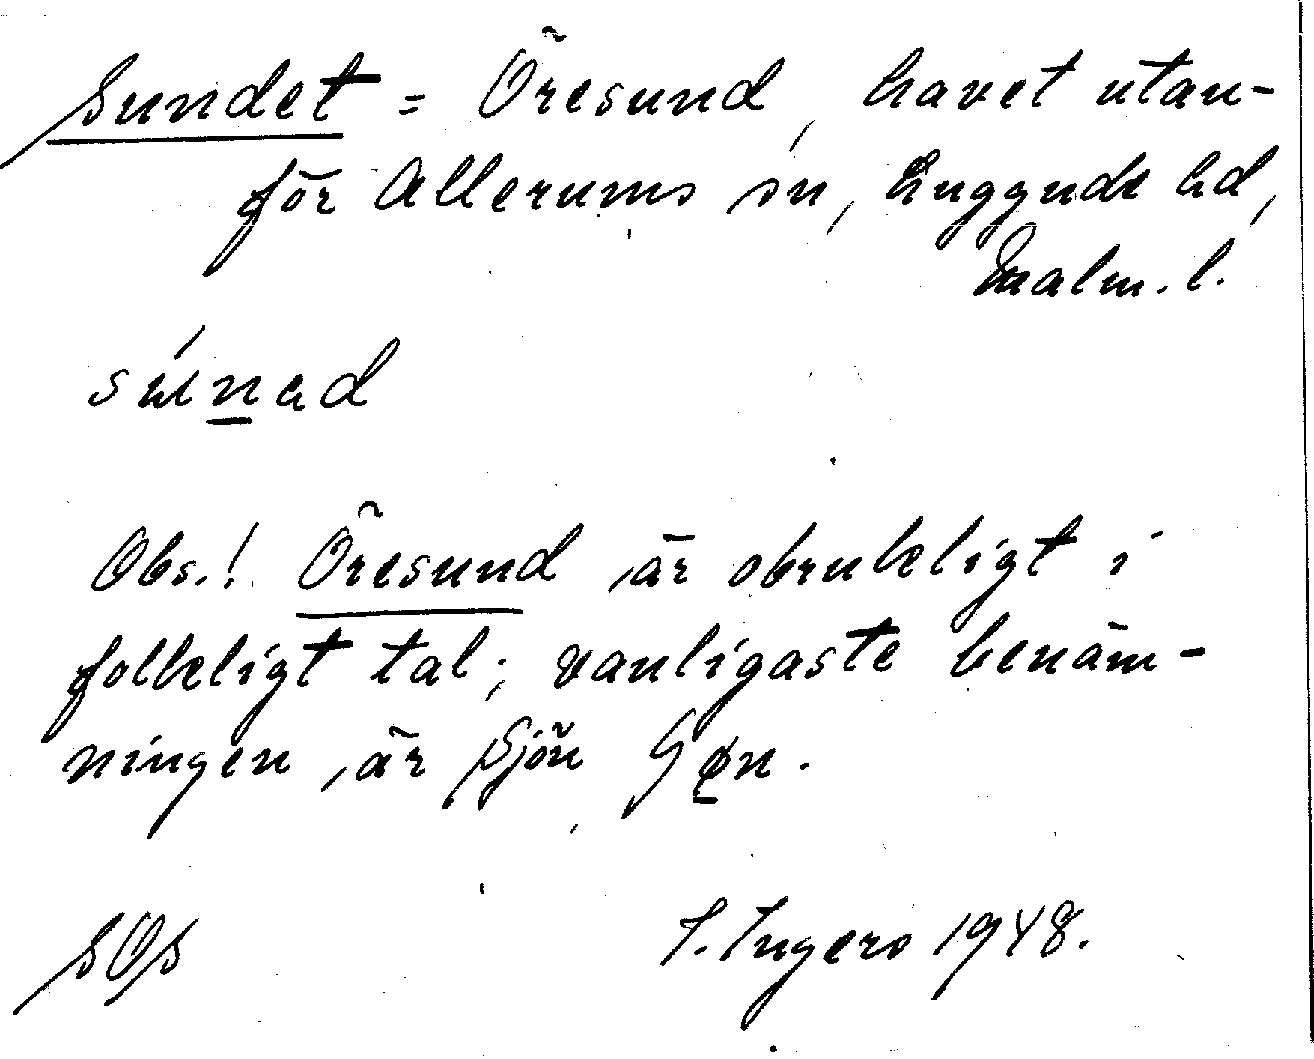 Sundet = Öresund, havet utan-
för Allerums sn, Luggude hd,
Malm. l.
súnad
Obs.! Öresund är obrukligt i
folkligt tal; vanligaste benäm-
ningen är Sjön
SOS
I. Ingers 1948.